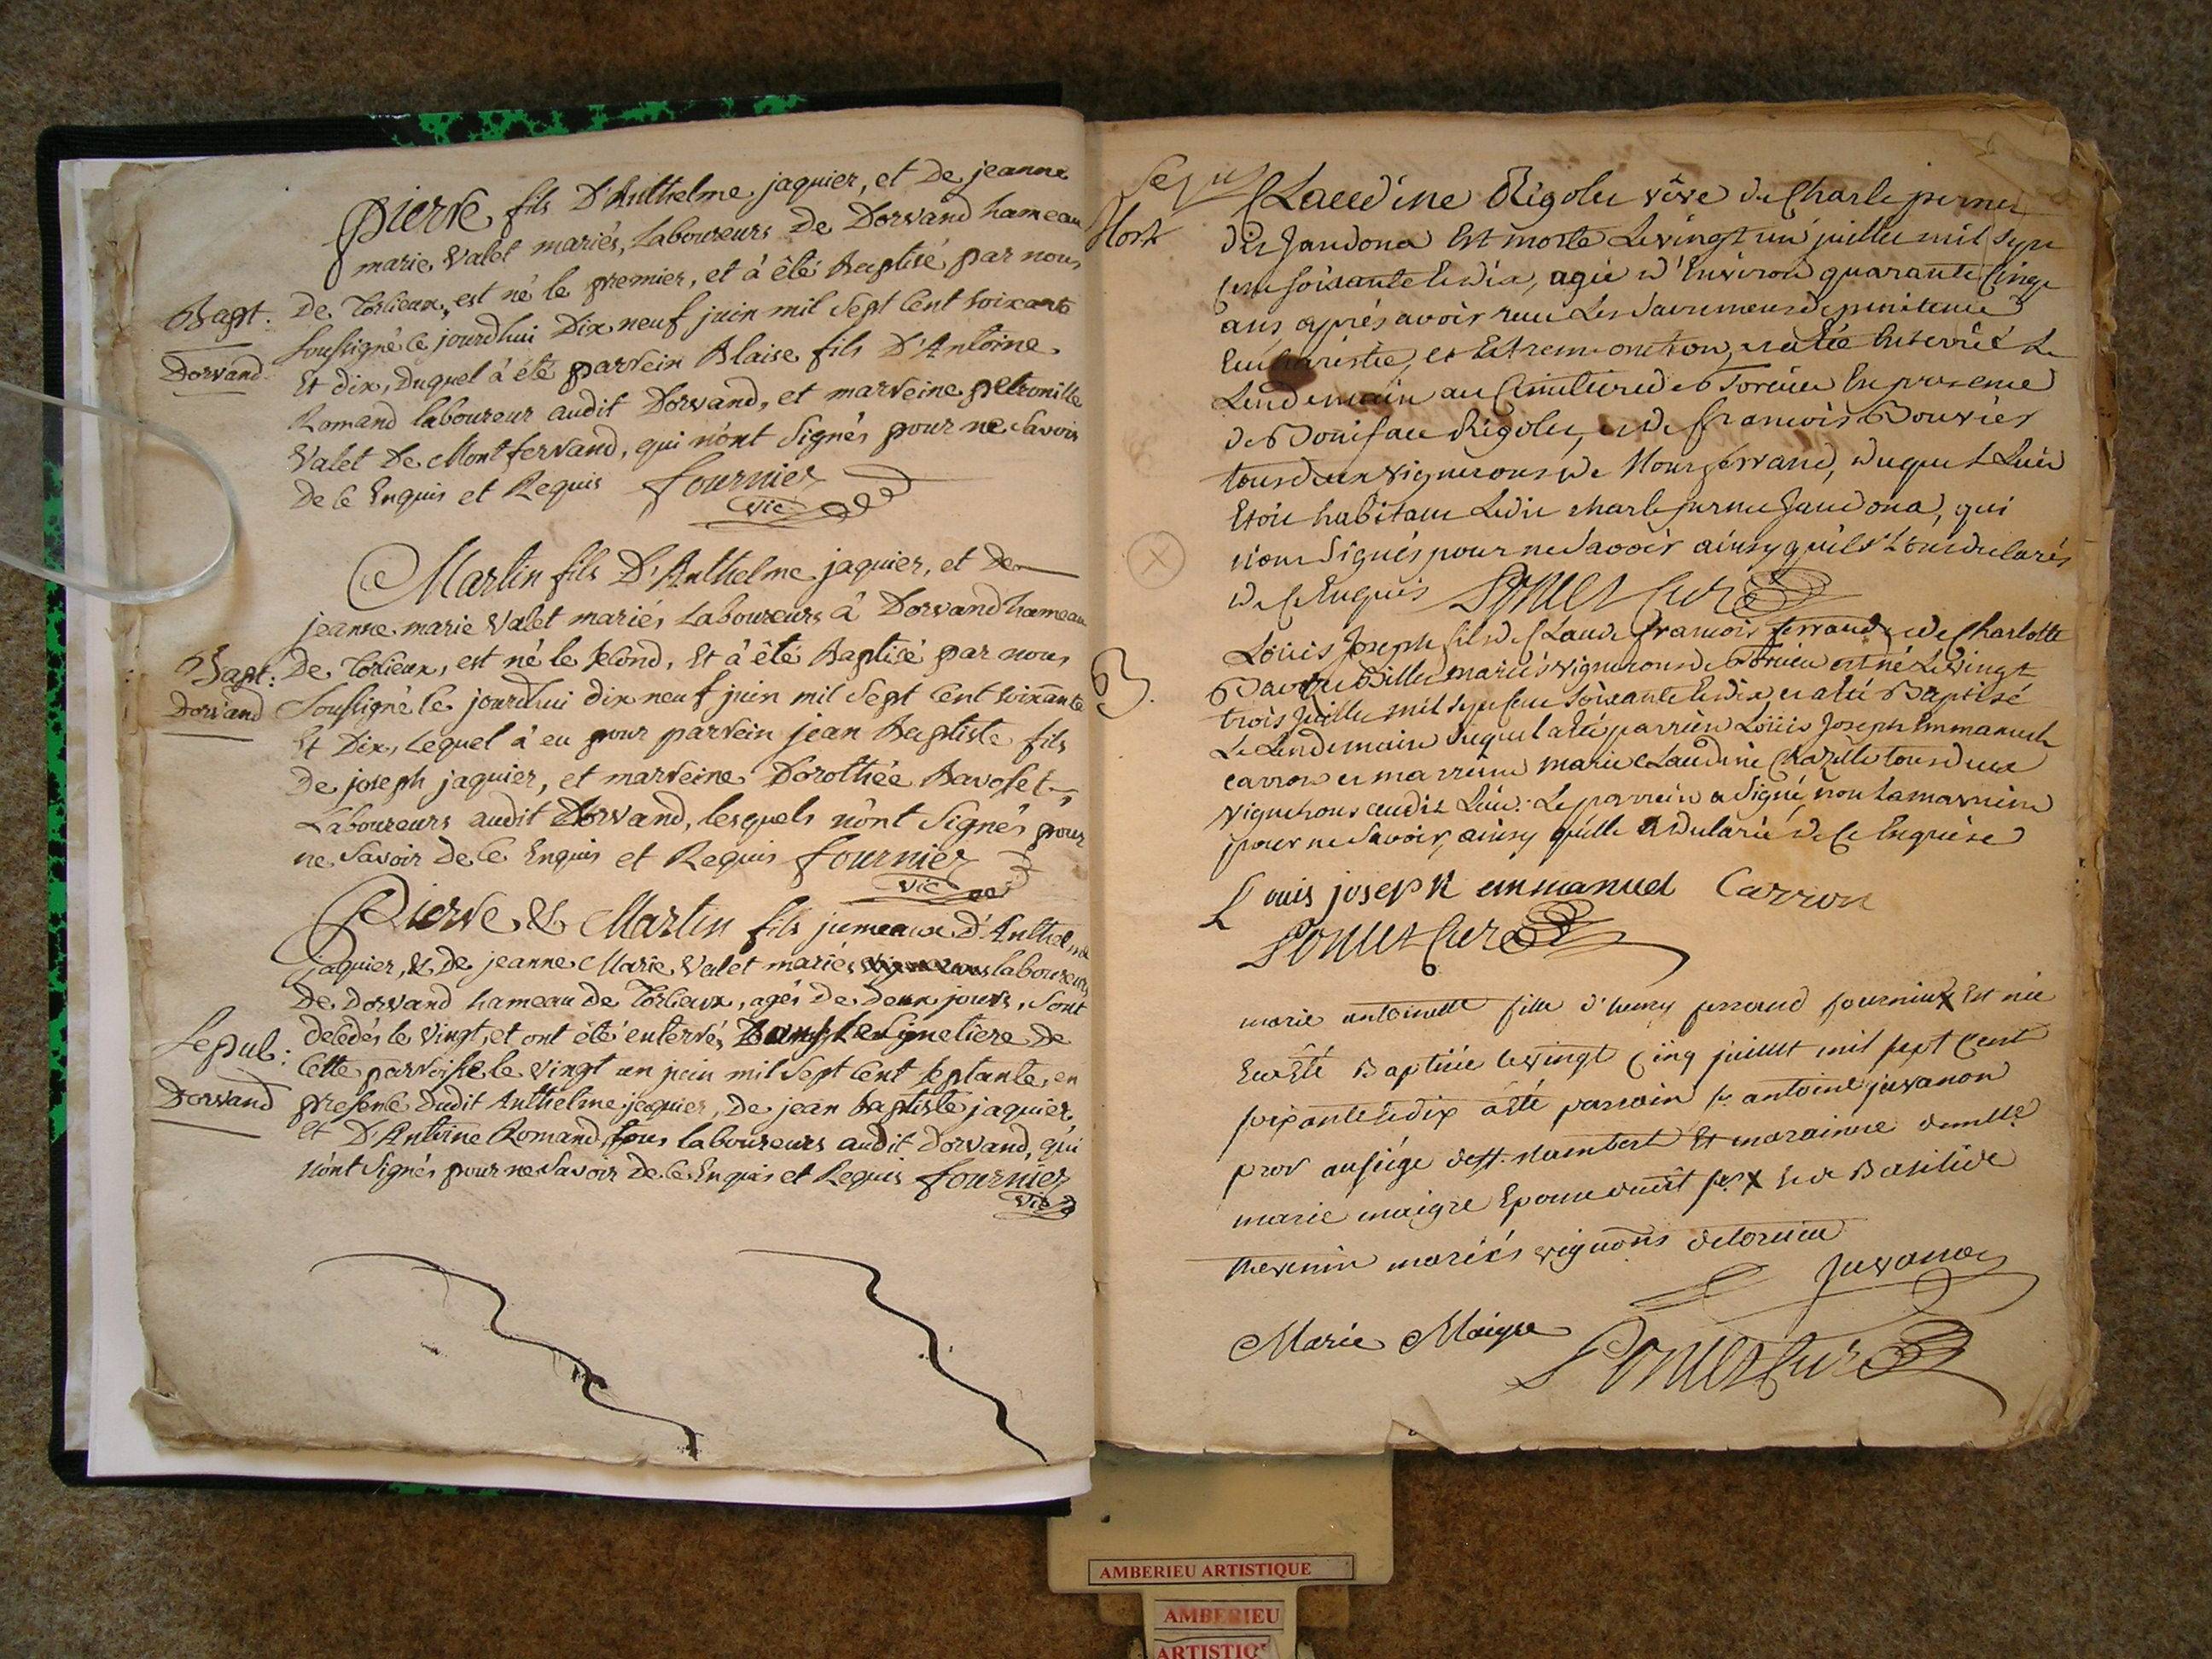 Pierre, fils D'Anthelme jaquier, et De jeanne
marie Valet mariés, Laboureurs De Dorvand hameau
Bapt: De Torcieux, est né le premier, et à été Baptisé par nous
soussigné ce jourdhui Dix neuf juin mil Sept Cent soixante
Dorvand Et dix, Duquel à été parrein Blaise fils D'Antoine
Romand laboureur audit Dorvand, et marreine petronille
Valet De Montferrand, qui n'ont Signés pour ne Savoir
De ce Enquis et Requis fournier
vic
Martin fils D'Anthelme jaquier, et De
jeanne marie Valet mariés Laboureurs à Dorvand hameau
Bapt: De Torcieux, est né le second, Et à été Baptisé par nous
Dorvand Soussigné ce jourdhui dix neuf juin mil Sept Cent soixante
Et Dix, Lequel à eu pour parrein jean Baptiste fils
De joseph jaquier, et marreine Dorothée Ravoset,
Laboureurs audit Dorvand, lesquels n'ont Signés pour
ne Savoir De ce Enquis et Requis fournier
vic
Pierre & Martin fils jumeaux D'Anthelme
jaquier, & De jeanne Marie Valet mariés laboureurs
De Dorvand hameau de Torcieux, agés De Deux jours, Sont
Sepul: décédés le Vingt, et ont été enterrés Dans le Cimetiere De
Cette parroisse le Vingt un juin mil Sept Cent Septante, en
Dorvand presence Dudit Anthelme jaquier, De jean baptiste jaquier
et D'Antoine Romand, tous laboureurs audit Dorvand, qui
n'ont Signés pour ne Savoir De Ce Enquis et Requis fournier
vic
Claudine Rigolet veve de Charle pernet
Mort dit Jandona Est morte Le vingt un juillet mil Sept
Cent soixante et dix, agée d'Environ quarante Cinq
ans après avoir recu Les Sacremens de penitence
Eucharistie, et Extreme onction, a été Enterrée Le
Lendemain au Cimetiere de Torcieu En presence
de Boniface Rigolet, et de francois Bouvier
tous deux vignerons de Montferrand, duquel Lieu
Etoit habitant Ledit charle pernet Jandona, qui
n'ont Signés pour ne Savoir ainsy quils L'ont declarés
de Ce Enquis Poncet Curé
Loüis Joseph fils de Claude francois ferrand et de Charlotte
B. mariés vignerons de Torcieu est né Le vingt
trois Juillet mil Sept Cent Soixante Et dix, et a été Baptisé
Le Lendemain duquel a été parrein Loüis Joseph Emmanuel
carron et marreine marie Claudine tous deux
vignerons audit Lieu. Le parrein a Signé, non La marreine
pour ne Savoir, ainsy quelle a declaré de Ce Enquise
Louis joseph emmanuel Carron
Poncet Curé
marie antoinette fille d'henry ferrand fournieux Est née
Et a Eté Baptisée le vingt Cinq juillet mil sept Cent
soixante et dix a été parrain sr antoine juvanon
pror au siége de st. rambert Et maraine demlle
marie maigre Epouse dudit sr X Et de Basilide
thevenin mariés vignerons de torcieu
Juvanon
Marie Maigre Poncet Curé
AMBERIEU ARTISTIQUE
AMBERIEU